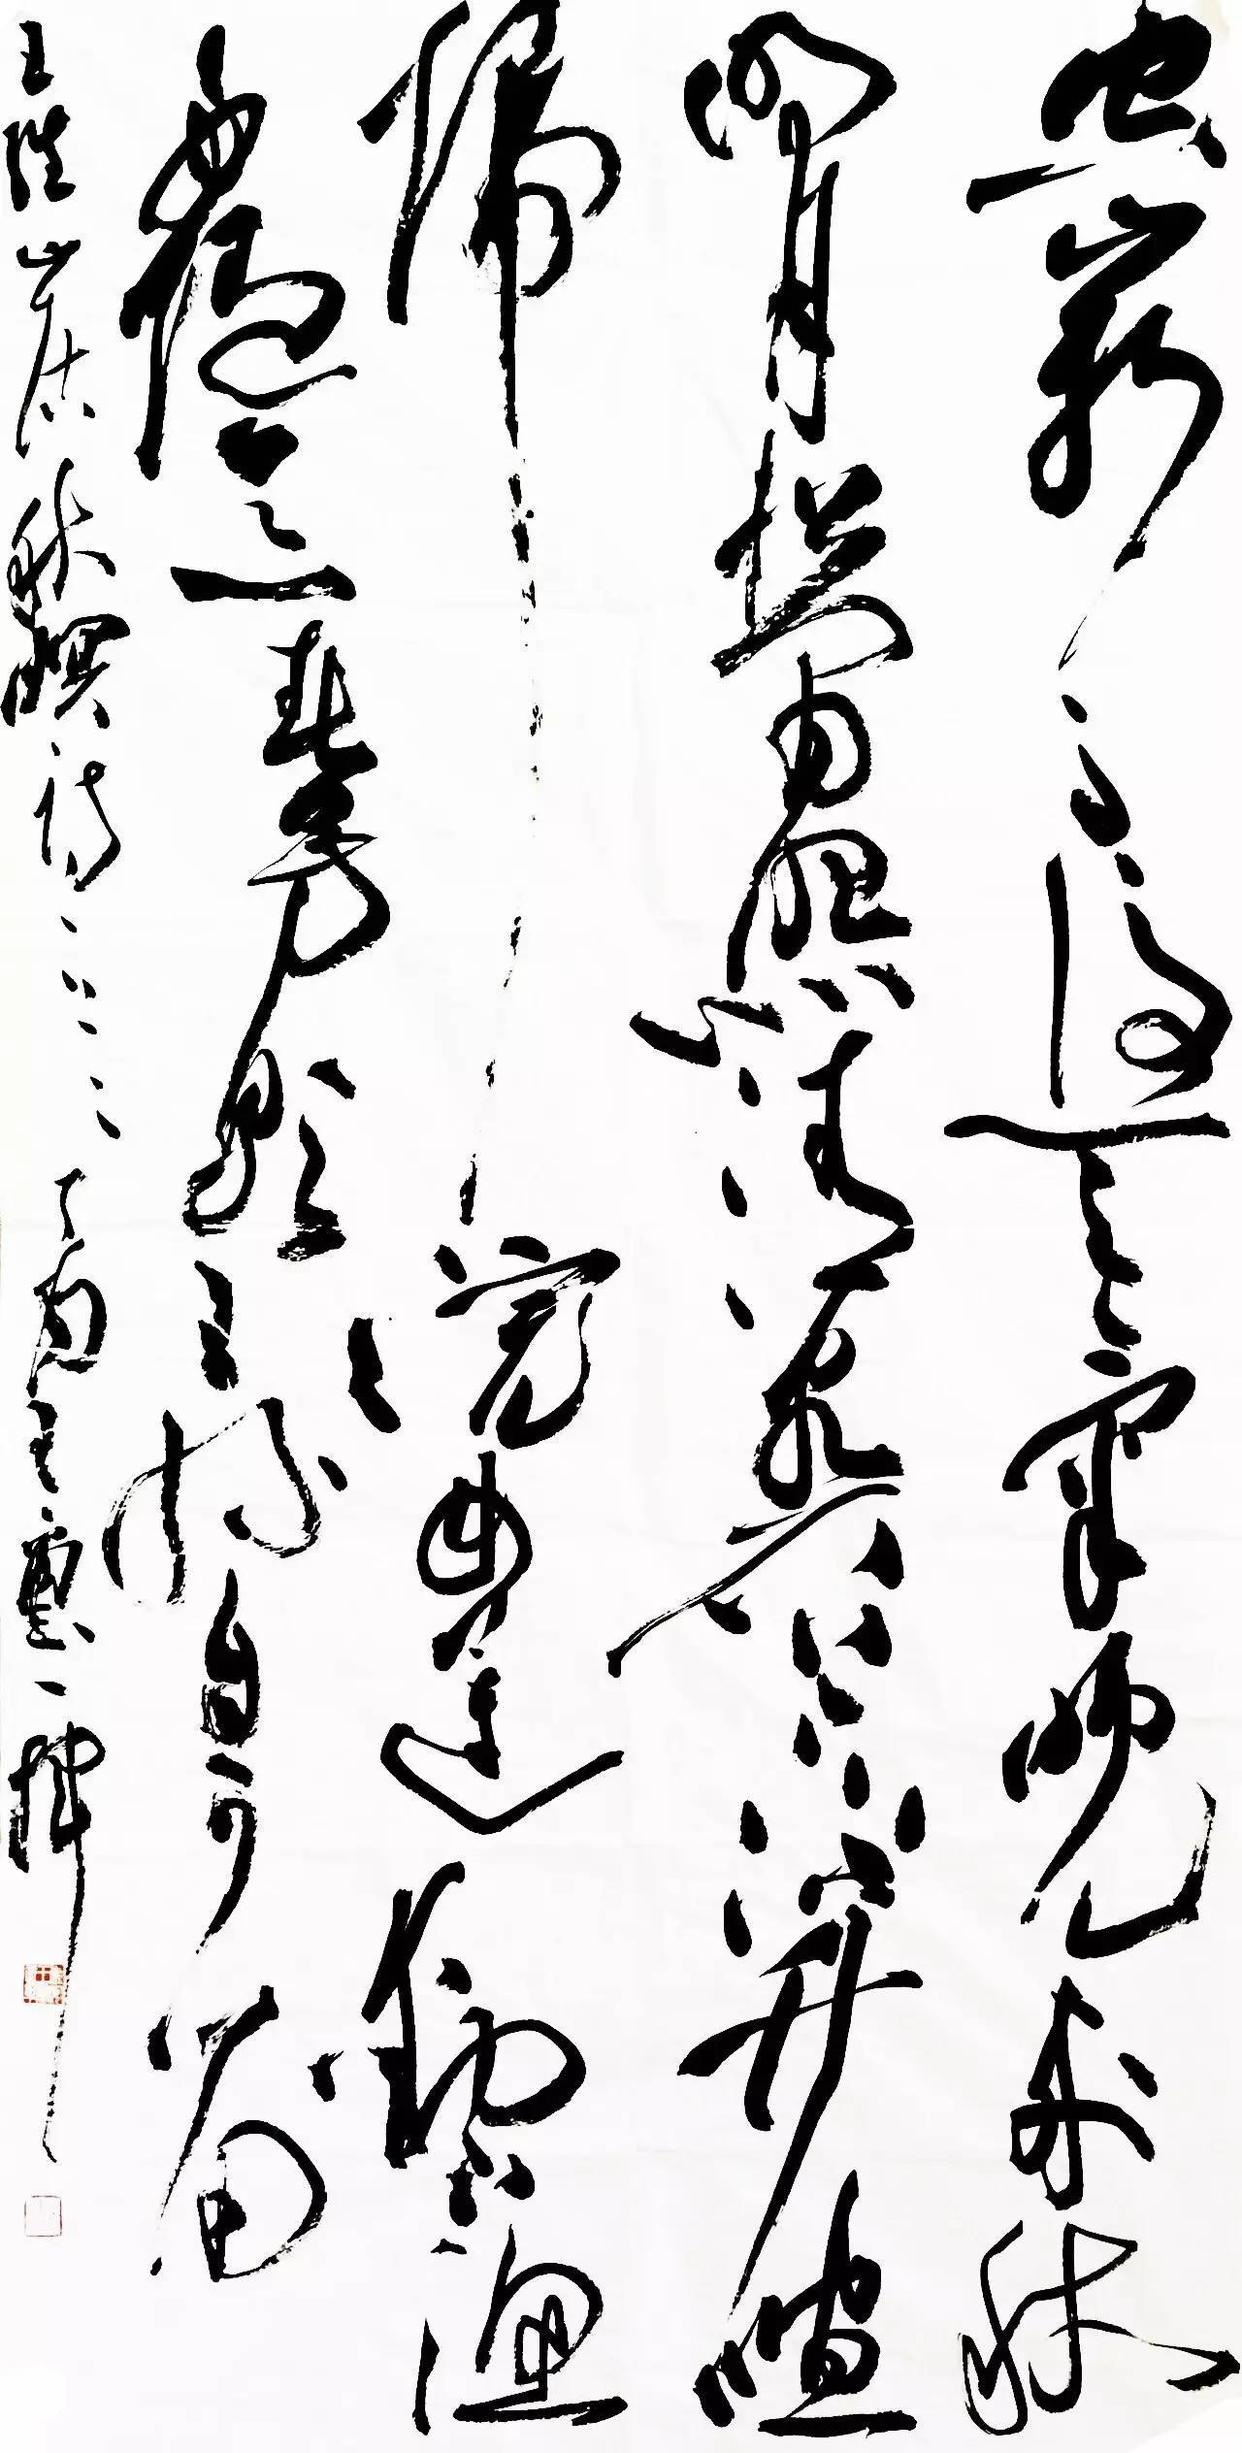 空山新雨後天氣晚來秋
明月松間照清泉石上流竹喧
歸浣女蓮動下漁
舟隨意春芳歇王孫自可留
王維山居秋暝詩